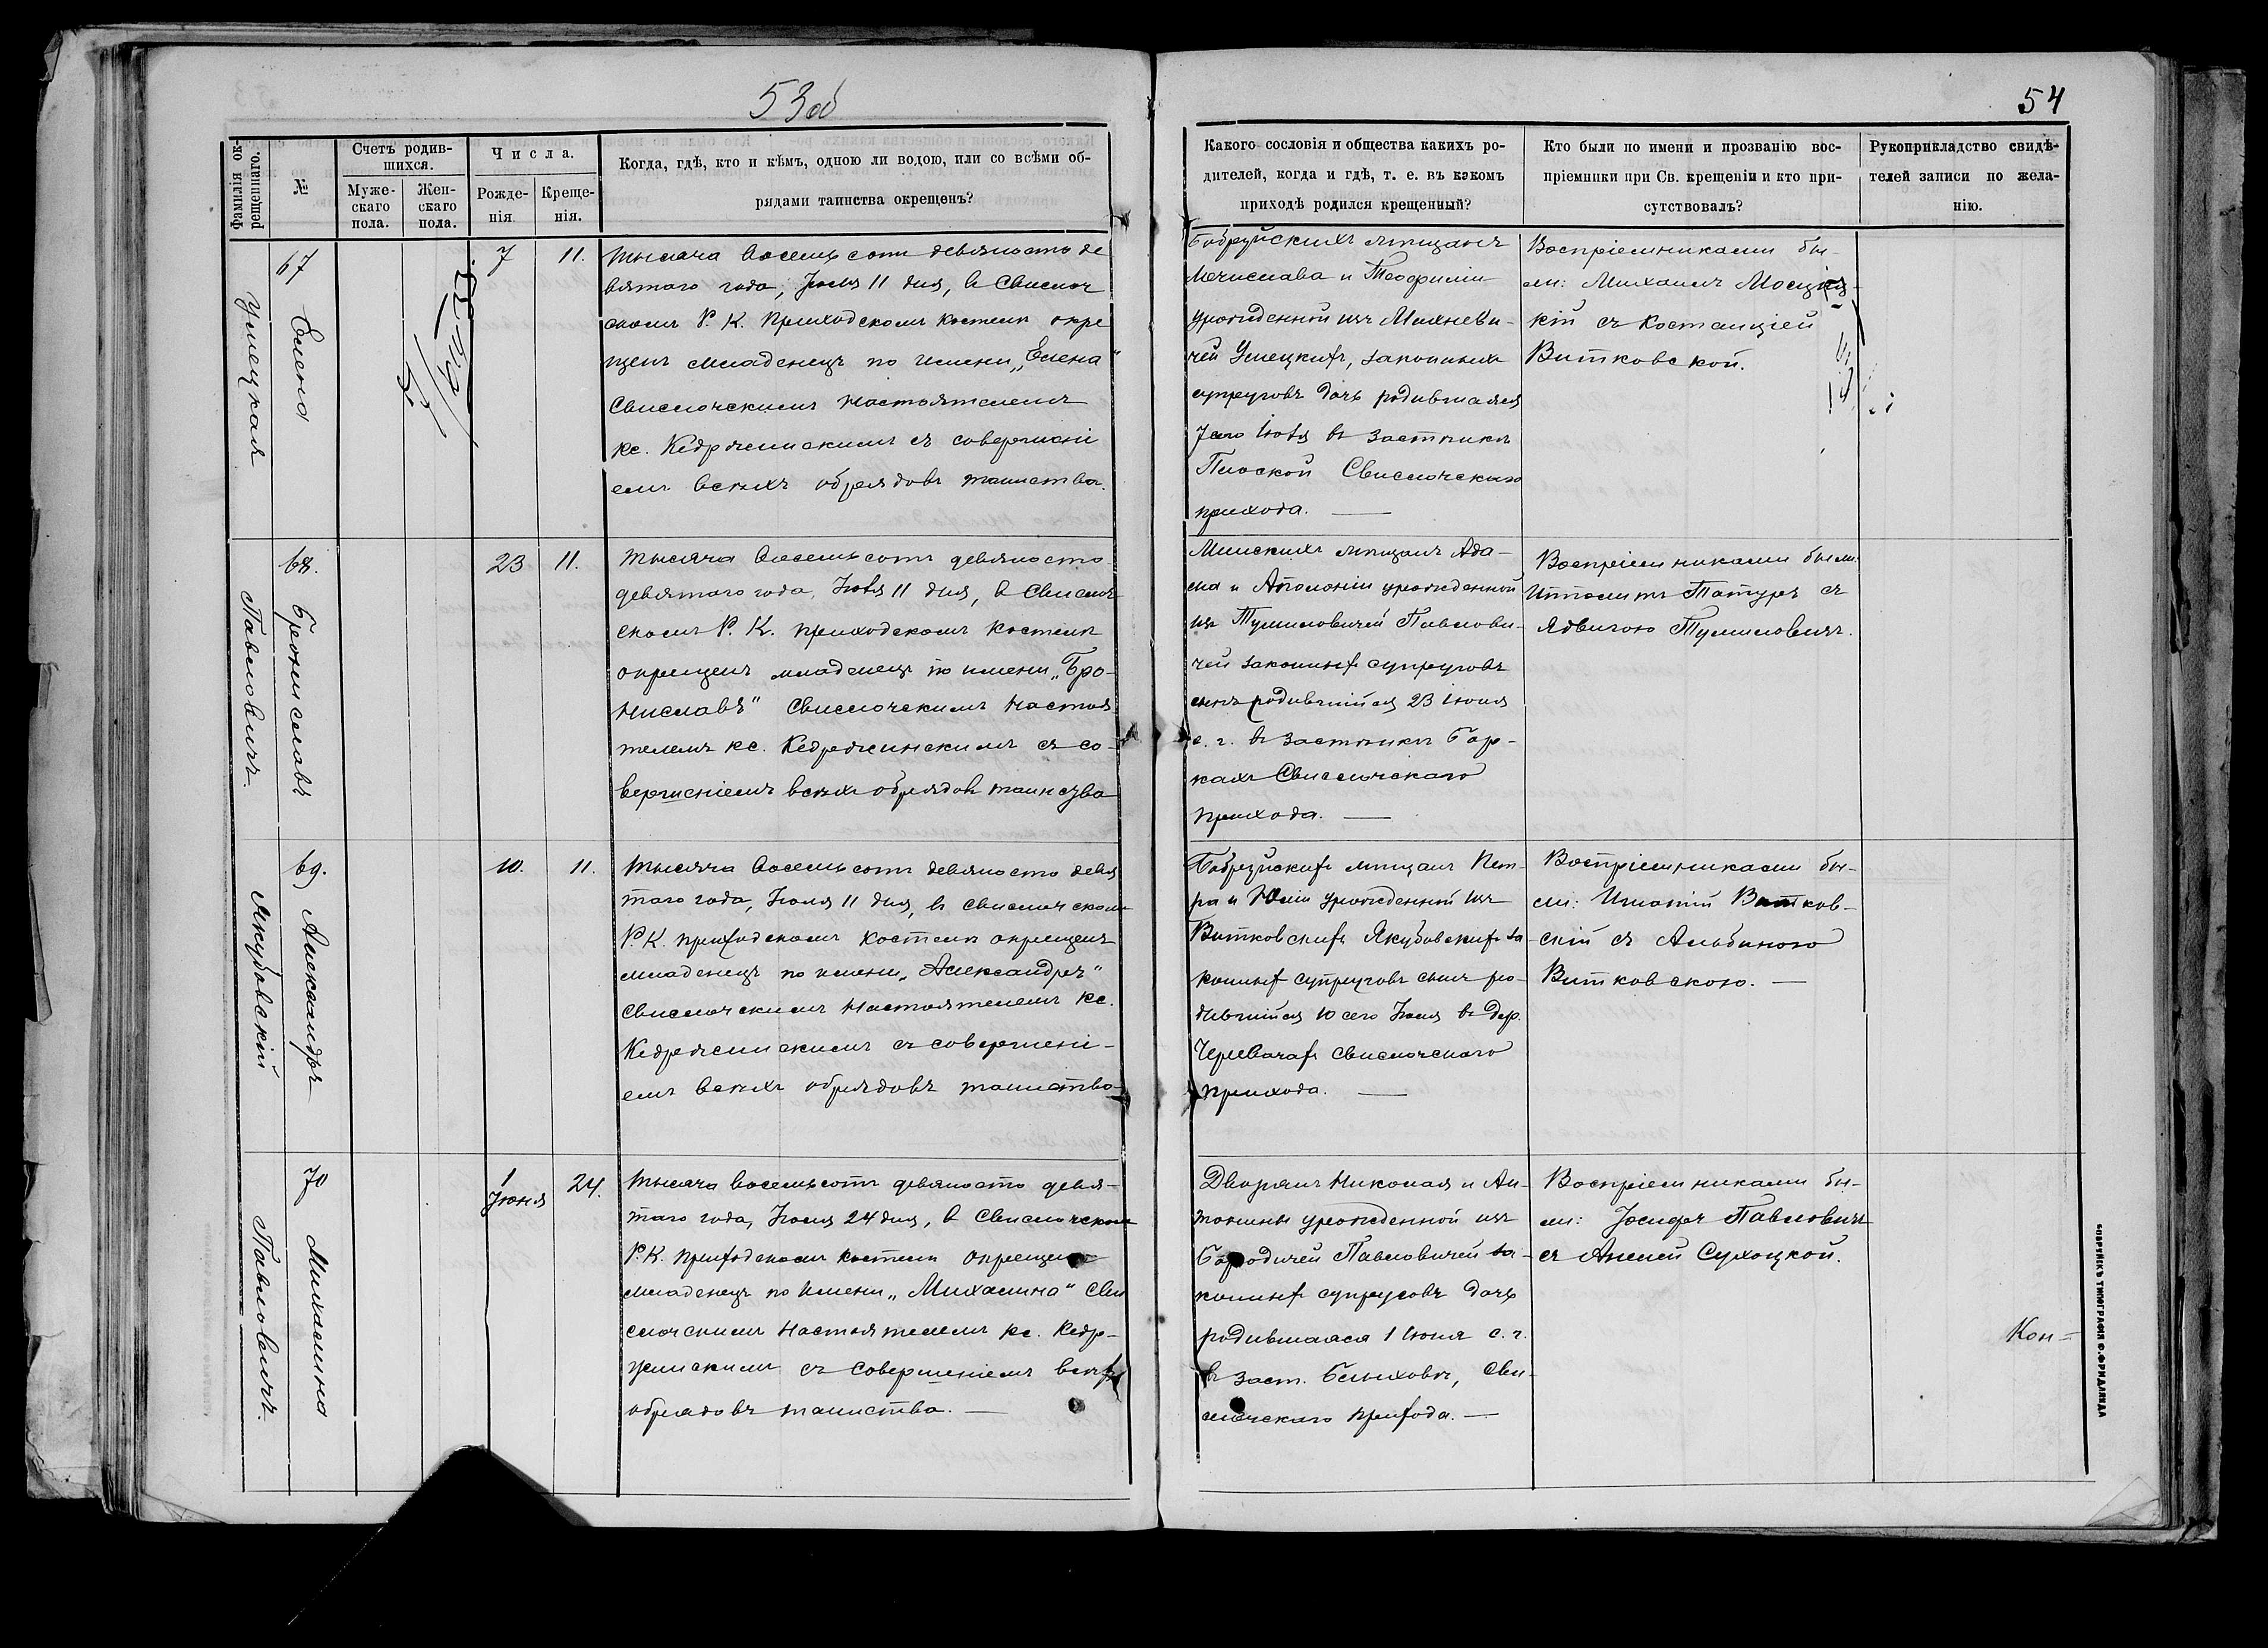 53об
54
Фамилія ок-
рещеннаго.
№
Счетъ родив-
шихся.
Муже-
скаго
пола.
Жен-
скаго
пола.
Числа.
Рожде-
нія.
Креще-
нія.
Когда, гдѣ, кто и кѣмъ, одною ли водою, или со всѣми об-
рядами таинства окрещенъ?
Какого сословія и общества какихъ ро-
дителей, когда и гдѣ, т. е. въ какомъ
приходѣ родился крещенный?
Кто были по имени и прозванію вос-
пріемники при Св. крещеніи и кто при-
сутствовалъ?
Рукоприкладство свидѣ-
телей записи по жела-
нію.
67
Елена
Умецкая
7
11.
Тысяча восемьсотъ девяносто де
вятаго года, Іюля 11 дня, въ Свислоч
скомъ Р. К. Приходскомъ костелѣ окре
щенъ младенецъ по имени „Елена"
Свислочскимъ Настоятелемъ
кс. Кедржинскимъ съ совершені
емъ всѣхъ обрядовъ таинства.
Бобруйскихъ мѣщанъ
Мечислава и Теофиліи
урожденной изъ Михневи-
чей Умецкихъ, законныхъ
супруговъ дочь родившаяся
7 сего Іюля въ застѣнкѣ
Плоской Свислочскаго
прихода. —
Воспріемниками бы-
ли: Михаилъ
кій съ Костанціей
Витковской.
68.
Брониславъ
Павловичъ
23
11.
Тысяча восемьсотъ девяносто
девятаго года, Іюля 11 дня, въ Свислоч
скомъ Р. К. приходскомъ костелѣ
окрещенъ младенецъ по имени „Бро-
ниславъ" Свислочскимъ Настоя
телемъ кс. Кедржинскимъ съ со-
вершеніемъ всѣхъ обрядовъ таинства
Минскихъ мѣщанъ Ада-
ма и Аполоніи урожденной
изъ Тумиловичей Павлови-
чей законныхъ супруговъ
сынъ родившійся 23 Іюня
с. г. въ застѣнкѣ Бор-
кахъ Свислочскаго
прихода. —
Воспріемниками были:
Ипполитъ Татуръ съ
Ядвигою Тумиловичъ.
69.
Александръ
Якубовскій
10.
11.
Тысяча восемьсотъ девяносто девя
таго года, Іюля 11 дня, въ Свислочскомъ
Р. К. приходскомъ костелѣ окрещенъ
младенецъ по имени „Александръ"
Свислочскимъ Настоятелемъ кс.
Кедржинскимъ съ совершені-
емъ всѣхъ обрядовъ таинства
Бобруйскихъ мѣщанъ Пет-
ра и Юліи урожденной изъ
Витковскихъ Якубовскихъ за
конныхъ супруговъ сынъ ро-
дившійся 10 сего Іюля въ дер.
Чревачахъ Свислочскаго
прихода. —
Воспріемниками бы-
ли: Игнатій Витков-
скій съ Альбиною
Витковскою. —
70
Михалина
Павловичъ.
1
Іюня
24.
Тысяча восемьсотъ девяносто девя-
таго года, Іюля 24 дня, въ Свислочскомъ
Р. К. приходскомъ костелѣ окрещенъ
младенецъ по имени „Михалина" Сви
слочскимъ Настоятелемъ кс. Кедр-
жинскимъ съ совершеніемъ всѣхъ
обрядовъ таинства. —
Дворянъ Николая и Ан-
тонины урожденной изъ
Бородичей Павловичей за-
конныхъ супруговъ дочь
родившаяся 1 Іюня с. г.
въ заст. Свис-
лочскаго прихода. —
Воспріемниками бы-
ли: Іосифъ Павловичъ
съ Анелей Сухоцкой.
Кон=
БОБРУЙСКЪ ТИПОГРАФІЯ Ф. ФРИДЛЯНДА